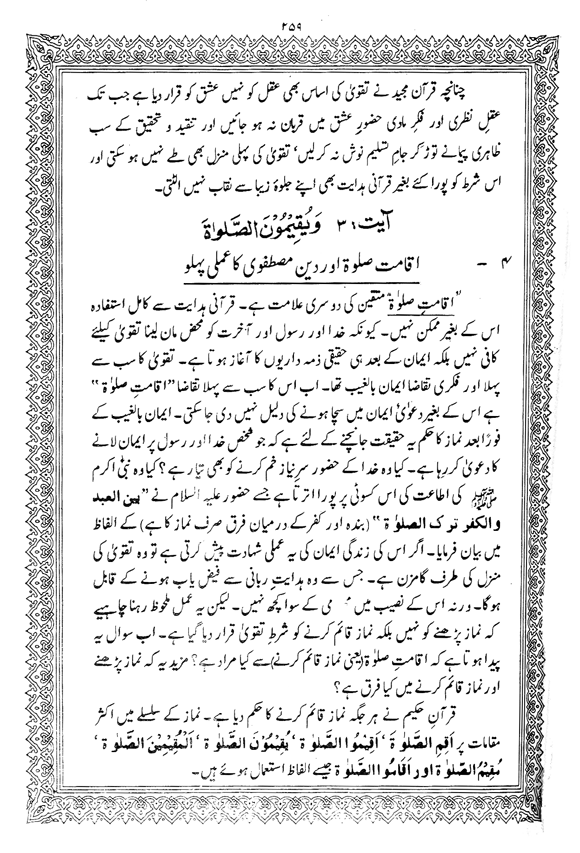 ۲۵۹
چنانچہ قرآن مجید نے تقویٰ کی اساس بھی عقل کو نہیں عشق کو قرار دیا ہے جب تک
عقلِ نظری اور فکرِ مادی حضورِ عشق میں قربان نہ ہو جائیں اور تنقید و تحقیق کے سب
ظاہری پیمانے توڑ کر جامِ تسلیم نوش نہ کر لیں‘ تقویٰ کی پہلی منزل بھی طے نہیں ہو سکتی اور
اس شرط کو پورا کئے بغیر قرآنی ہدایت بھی اپنے جلوۂ زیبا سے نقاب نہیں الٹتی۔
آیت: ۳ وَیُقِیْمُوْنَ الصَّلٰوۃَ
۴ - اقامت صلوٰۃ اور دین مصطفوی کا عملی پہلو
”اقامتِ صلوٰۃ“ متقین کی دوسری علامت ہے۔ قرآنی ہدایت سے کامل استفادہ
اس کے بغیر ممکن نہیں۔ کیونکہ خدا اور رسول اور آخرت کو محض مان لینا تقویٰ کیلئے
کافی نہیں بلکہ ایمان کے بعد ہی حقیقی ذمہ داریوں کا آغاز ہوتا ہے۔ تقویٰ کا سب سے
پہلا اور فکری تقاضا ایمان بالغیب تھا۔ اب اس کا سب سے پہلا تقاضا ”اقامتِ صلوٰۃ“
ہے اس کے بغیر دعوٰیٔ ایمان میں سچا ہونے کی دلیل نہیں دی جا سکتی۔ ایمان بالغیب کے
فوراً بعد نماز کا حکم یہ حقیقت جانچنے کے لئے ہے کہ جو شخص خدا اور رسول پر ایمان لانے
کا دعویٰ کر رہا ہے۔ کیا وہ خدا کے حضور سرِ نیاز خم کرنے کو بھی تیار ہے؟ کیا وہ نبیٔ اکرم
ﷺ کی اطاعت کی اس کسوٹی پر پورا اترتا ہے جسے حضور علیہ السلام نے ”بین العبد
والکفر ترک الصلوٰۃ“ (بندہ اور کفر کے درمیان فرق صرف نماز کا ہے) کے الفاظ
میں بیان فرمایا۔ اگر اس کی زندگی ایمان کی یہ عملی شہادت پیش کرتی ہے تو وہ تقویٰ کی
منزل کی طرف گامزن ہے۔ جس سے وہ ہدایتِ ربانی سے فیض یاب ہونے کے قابل
ہو گا۔ ورنہ اس کے نصیب میں کے سوا کچھ نہیں۔ لیکن یہ عمل ملحوظ رہنا چاہیے
کہ نماز پڑھنے کو نہیں بلکہ نماز قائم کرنے کو شرطِ تقویٰ قرار دیا گیا ہے۔ اب سوال یہ
پیدا ہوتا ہے کہ اقامتِ صلوٰۃ (یعنی نماز قائم کرنے) سے کیا مراد ہے؟ مزید یہ کہ نماز پڑھنے
اور نماز قائم کرنے میں کیا فرق ہے؟
قرآنِ حکیم نے ہر جگہ نماز قائم کرنے کا حکم دیا ہے۔ نماز کے سلسلے میں اکثر
مقامات پر اَقِمِ الصَّلٰوۃَ‘ اَقِیْمُوا الصَّلٰوۃَ‘ یُقِیْمُوْنَ الصَّلٰوۃَ‘ اَلْمُقِیْمِیْنَ الصَّلٰوۃَ‘
مُقِیْمُ الصَّلٰوۃِ اور اَقَامُوا الصَّلٰوۃَ جیسے الفاظ استعمال ہوئے ہیں۔